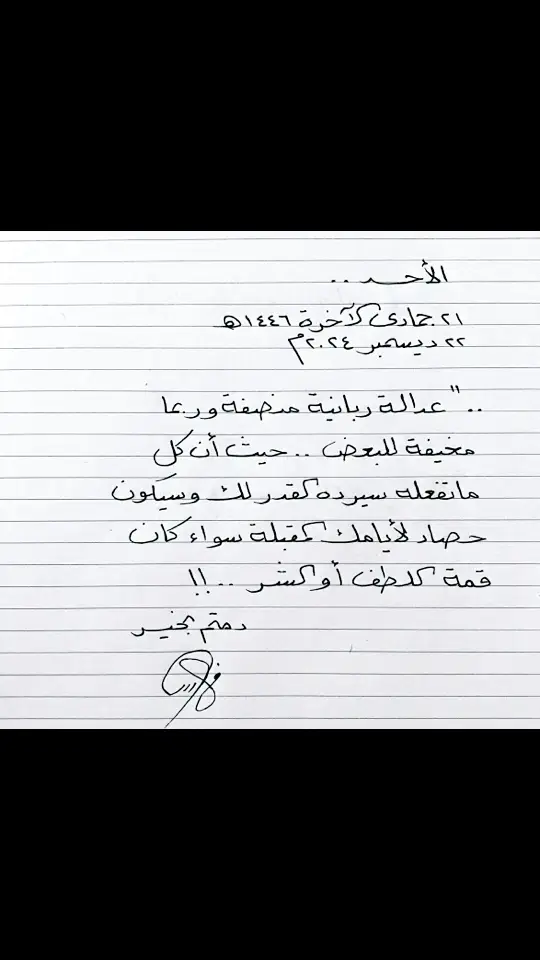 الأحد ..
٢١ جمادى الآخرة ١٤٤٦هـ
٢٢ ديسمبر ٢٠٢٤م
.. " عدالة ربانية منصفة وربما
مخيفة للبعض .. حيث أن كل
ماتفعله سيرده القدر لك وسيكون
حصاد لأيامك المقبلة سواء كان
قمة اللطف أو الشر .. !!
دمتم بخير